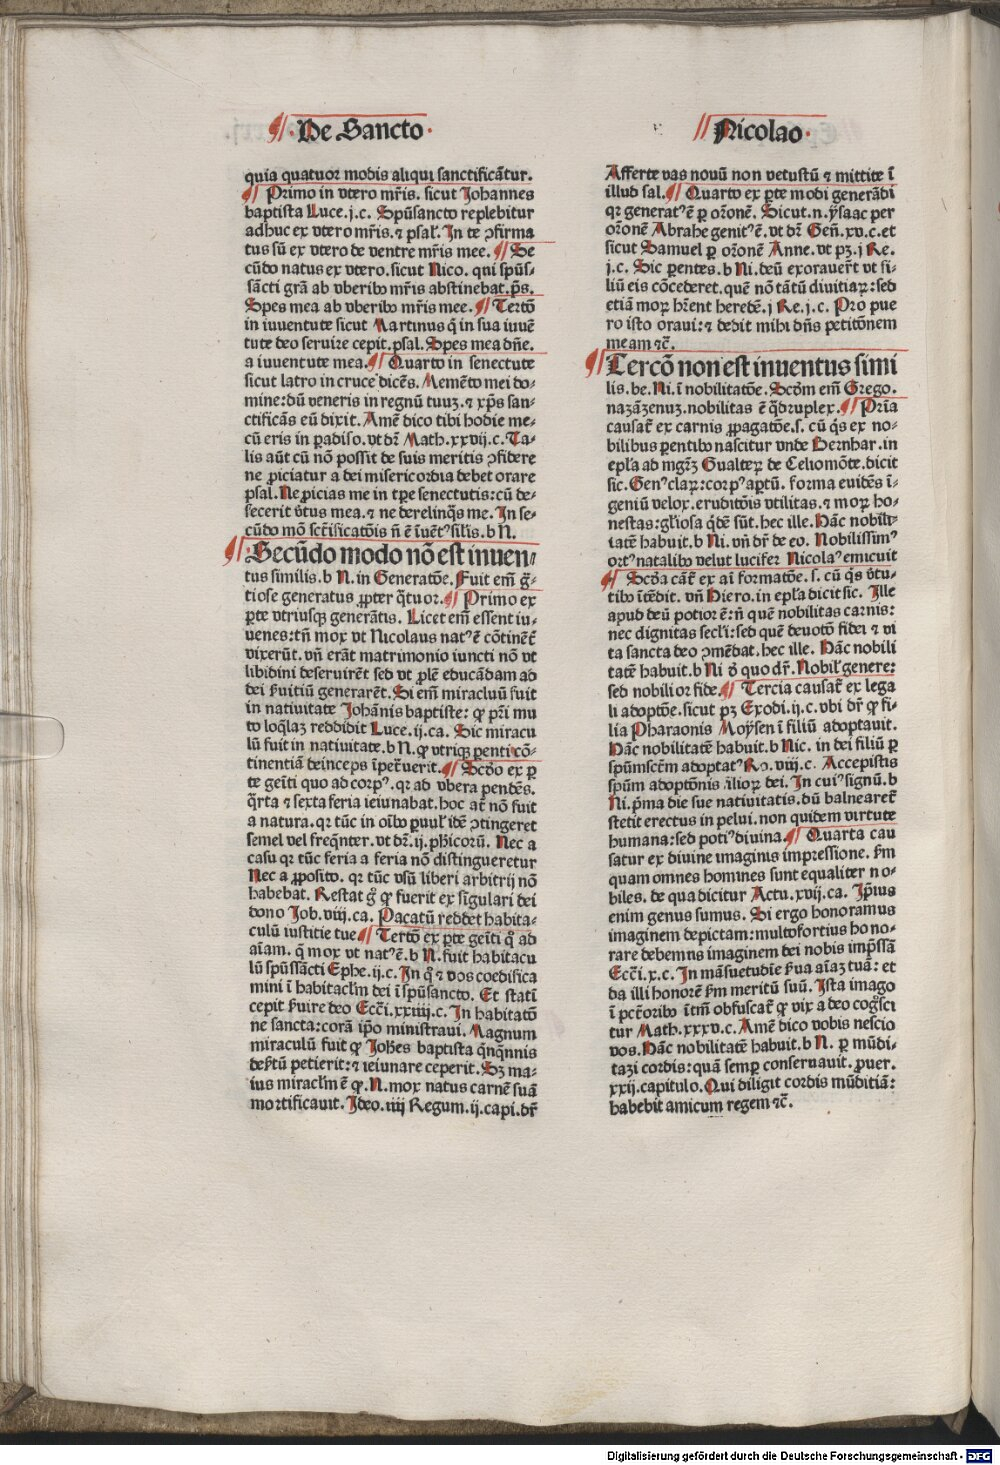 De Sancto
Nicolao
quia quatuor modis aliqui sanctificãtur.
¶ Primo in vtero mr̃is. sicut Johannes
baptista Luce.j.c. Spũsancto replebitur
adhuc ex vtero mr̃is. ⁊ psal. In te ꝯfirma
tus sũ ex vtero de ventre mr̃is mee. ¶ Se
cũdo natus ex vtero. sicut Nico. qui spũs⸗
sãcti grã ab vberibꝰ mr̃is abstinebat. p̃s.
Spes mea ab vberibꝰ mr̃is mee. ¶ Tertõ
in iuuentute sicut Martinus q̃ in sua iuuẽ
tute deo seruire cepit. psal. Spes mea dñe.
a iuuentute mea. ¶ Quarto in senectute
sicut latro in cruce dicẽs. Memẽto mei do⸗
mine: dũ veneris in regnũ tuuꝫ. ⁊ xp̃s san⸗
ctificãs eũ dixit. Amẽ dico tibi hodie me⸗
cũ eris in ꝑadiso. vt dr̃ Math. xxvij. c. Ta⸗
lis aũt cũ nõ possit de suis meritis ꝯfidere
ne ꝓiciatur a dei misericordia debet orare
psal. Ne ꝓicias me in tp̃e senectutis: cũ de⸗
fecerit ṽtus mea. ⁊ ne derelinq̃s me. In se⸗
cũdo mõ sctĩficatõis ñ ẽ ĩuẽtꝰ sil̃is. b N.
¶ Secũdo modo nõ est inuen⸗
tus similis. b N. in Generatõe. Fuit em̃ g̃⸗
tiose generatus ꝓpter q̃tuor. ¶ Primo ex
ꝑte vtriusqꝫ generãtis. Licet em̃ essent iu⸗
uenes: tñ mox vt Nicolaus natꝰ ẽ cõtinẽt̃
vixerũt. vñ erãt matrimonio iuncti nõ vt
libidini deseruirẽt sed vt ꝓlẽ educãdam ad
dei ẜuitiũ generarẽt. Si em̃ miraculũ fuit
in natiuitate Johãnis baptiste: ꝙ pr̃i mu
to loq̃laꝫ reddidit Luce. ij. ca. Sic miracu
lũ fuit in natiuitate. b N. ꝙ vtriqꝫ ꝑenti cõ⸗
tinentiã deinceps ĩpet̃uerit. ¶ Scd̃o ex ꝑ
te geĩti quo ad corpꝰ. qꝛ ad vbera pendẽs.
q̃rta ⁊ sexta feria ieiunabat. hoc at̃ nõ fuit
a natura. qꝛ tũc in oĩbꝰ ꝑuul̃ idẽ ꝯtingeret
semel vel freq̃nter. vt dr̃. ij. phicorũ. Nec a
casu qꝛ tũc feria a feria nõ distingueretur
Nec a ꝓposito. qꝛ tũc vsũ liberi arbitrij nõ
habebat. Restat g̊ ꝙ fuerit ex sĩgulari dei
dono Job. viij. ca. Pacatũ reddet habita⸗
culũ iustitie tue ¶ Tertõ ex ꝑte geĩti q̊ ad
aĩam. q̃ mox vt natꝰ ẽ. b N. fuit habitacu
lũ spũssãcti Ephe. ij. c. In q̊ ⁊ vos coedifica
mini ĩ habitacl̃m dei ĩ spũsancto. Et statĩ
cepit ẜuire deo Ecci̇. xxiiij. c. In habitatõ
ne sancta: corã ip̃o ministraui. Magnum
miraculũ fuit ꝙ Joh̃es baptista q̃nq̃nnis
deẜtũ petierit: ⁊ ieiunare ceperit. Sꝫ ma⸗
ius miracl̃m ẽ ꝙ. N. mox natus carnẽ suã
mortificauit. Ideo. iiij Regum. ij. capi. dr̃
Afferte vas nouũ non vetustũ ⁊ mittite ĩ
illud sal. ¶ Quarto ex ꝑte modi generãdi
qꝛ generatꝰ ẽ ꝑ or̃onẽ. Sicut. n. ysaac per
or̃onẽ Abrahe genitꝰ ẽ. vt dr̃ Geñ. xv. c. et
sicut Samuel ꝑ or̃onẽ Anne. vt pꝫ. j Re.
j. c. Sic ꝑentes. b Ni. deũ exorauer̃t vt fi⸗
liũ eis cõcederet. quẽ nõ tãtũ diuitiaꝝ: sed
etiã moꝝ hr̃ent heredẽ. j Re. j. c. Pro pue
ro isto oraui: ⁊ dedit mihi dñs petitõnem
meam ⁊c̃.
¶ Tercõ non est inuentus simi
lis. be. Ni. ĩ nobilitatõe. Scd̃m em̃ Grego.
nazãzenuꝫ. nobilitas ẽ q̃druplex. ¶ Pri̇̃a
causat̃ ex carnis ꝓpagatõe. s. cũ q̃s ex no⸗
bilibus ꝑentibꝰ nascitur vnde Bernhar. in
epl̃a ad mgr̃ꝫ Gualteꝝ de Celiomõte. dicit
sic. Genꝰ claꝝ: corpꝰ aptũ. forma euidẽs ĩ⸗
geniũ velox. eruditõis vtilitas. ⁊ moꝝ ho⸗
nestas: gl̃iosa q̃dẽ sũt. hec ille. Hãc nobili⸗
tatẽ habuit. b Ni. vñ dr̃ de eo. Nobilissimꝰ
ortꝰ natalibꝰ velut lucifer Nicolaꝰ emicuit
¶ Scd̃a cãt̃ ex aĩ formatõe. s. cũ q̃s ṽtu⸗
tibꝰ ĩtẽdit. vñ Hiero. in epl̃a dicit sic. Ille
apud deũ potior ẽ: ñ quẽ nobilitas carnis:
nec dignitas secl̃i: sed quẽ deuotõ fidei ⁊ vi
ta sancta deo ꝯmẽdat. hec ille. Hãc nobili
tatẽ habuit. b Ni d̃ quo dr̃. Nobil̃ genere:
sed nobilior fide. ¶ Tercia causat̃ ex lega
li adoptõe. sicut pꝫ Exodi. ij. c. vbi dr̃ ꝙ fi⸗
lia Pharaonis Moysen ĩ filiũ adoptauit.
Hãc nobilitatẽ habuit. b Nic. in dei filiũ ꝑ
spũmsctm̃ adoptatꝰ Ro. viij. c. Accepistis
spũm adoptõnis ãlioꝝ dei. In cuiꝰ signũ. b
Ni. p̃ma die sue natiuitatis. dũ balnearet̃
stetit erectus in pelui. non quidem virtute
humana: sed potiꝰ diuina. ¶ Quarta cau
satur ex diuine imaginis impressione. ẜm
quam omnes homines sunt equaliter no⸗
biles. de qua dicitur Actu. xvij. ca. Ip̃ius
enim genus sumus. Si ergo honoramus
imaginem depictam: multo fortius hono⸗
rare debemus imaginem dei nobis imp̃ssã
Ecci̇. x. c. In mãsuetudĩe ẜua aĩaꝫ tuã: et
da illi honorẽ ẜm meritũ suũ. Ista imago
ĩ pctõribꝰ ĩtm̃ obfuscat̃ ꝙ vix a deo cog̊sci
tur Math. xxxv. c. Amẽ dico vobis nescio
vos. Hãc nobilitatẽ habuit. b N. ꝑ mũdi⸗
tazi cordis: quã semꝑ conseruauit. ꝓuer.
xxij. capitulo. Qui diligit cordis mũditiã:
habebit amicum regem ⁊c̃.
Digitalisierung gefördert durch die Deutsche Forschungsgemeinschaft - DFG